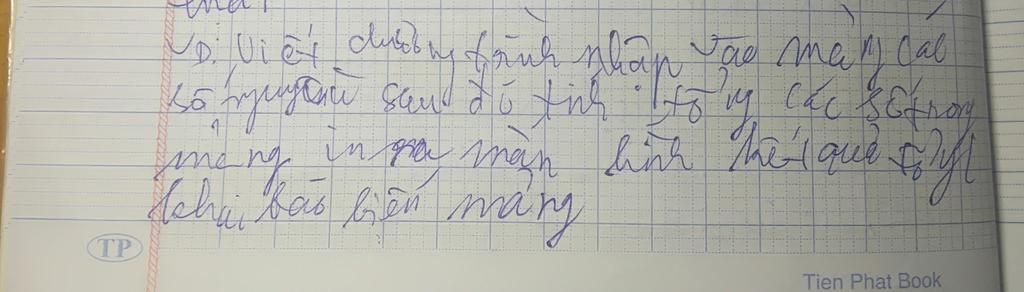 VD: Viết chương trình nhập vào mảng các
số nguyên sau đó tính tổng các số trong
mảng in ra màn hình kết quả tổng
khai báo biến mảng
TP
Tien Phat Book